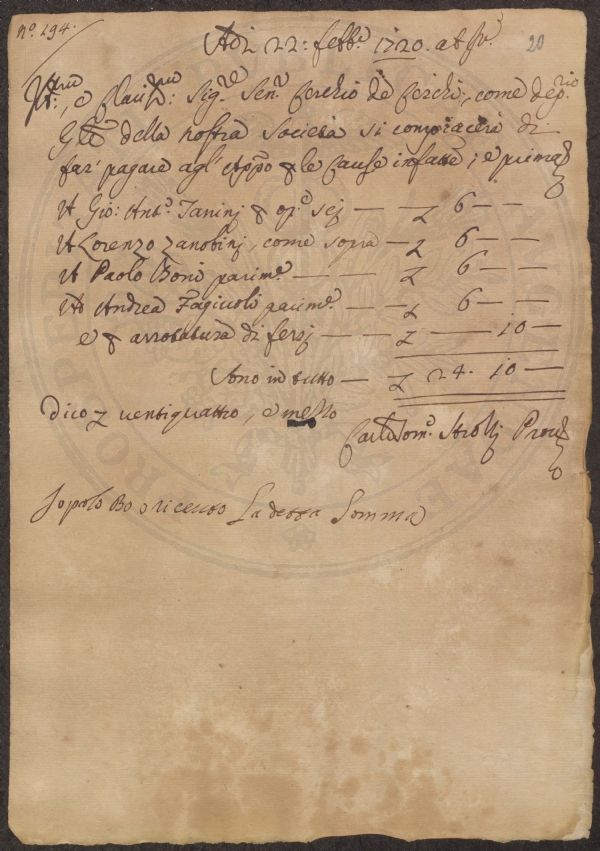 Nº. 194.
Adì 22: febb.º 1720. ab In.e
20
Ill.mo, e Clariss.mo: Sig.re Sen.re Cerchio de Cerchi, come dep.rio
G.le della nostra Società si compiacerà di
far' pagare agl'App.o p le cause infatte; e prima
A Gio: Ant.º Tanini p op.e sei — — 6 — —
A Lorenzo Zanobini, come sopra — 6 — —
A Paolo Boni parim.e — — — 6 — —
Ad Andrea Fagiuoli parim.e — — 6 — —
e p arrotatura di ferri — — — — 10 —
Sono in tutto — 24. 10 —
Dico ventiquattro, e mezzo
Carlo Tom.º Strozzi Prov.re
Io polo Bo o riceuto La detta Somma